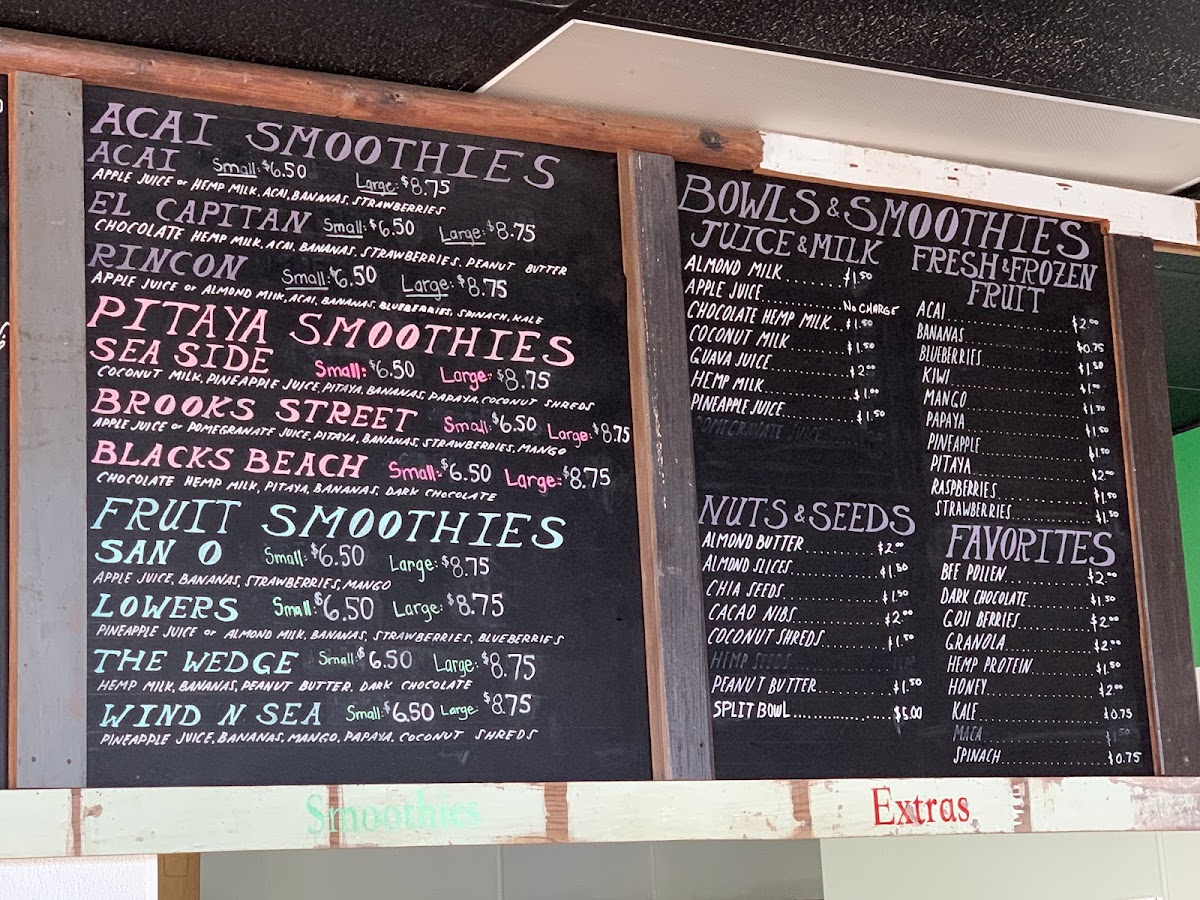 ACAI SMOOTHIES
ACAI Small: $6.50 Large: $8.75
APPLE JUICE or HEMP MILK, ACAI, BANANAS, STRAWBERRIES
EL CAPITAN Small: $6.50 Large: $8.75
CHOCOLATE HEMP MILK, ACAI, BANANAS, STRAWBERRIES, PEANUT BUTTER
RINCON Small: $6.50 Large: $8.75
APPLE JUICE or ALMOND MILK, ACAI, BANANAS, BLUEBERRIES, SPINACH, KALE
PITAYA SMOOTHIES
SEA SIDE Small: $6.50 Large: $8.75
COCONUT MILK, PINEAPPLE JUICE, PITAYA, BANANAS, PAPAYA, COCONUT SHREDS
BROOKS STREET Small: $6.50 Large: $8.75
APPLE JUICE or POMEGRANATE JUICE, PITAYA, BANANAS, STRAWBERRIES, MANGO
BLACKS BEACH Small: $6.50 Large: $8.75
CHOCOLATE HEMP MILK, PITAYA, BANANAS, DARK CHOCOLATE
FRUIT SMOOTHIES
SAN O Small: $6.50 Large: $8.75
APPLE JUICE, BANANAS, STRAWBERRIES, MANGO
LOWERS Small: $6.50 Large: $8.75
PINEAPPLE JUICE or ALMOND MILK, BANANAS, STRAWBERRIES, BLUEBERRIES
THE WEDGE Small: $6.50 Large: $8.75
HEMP MILK, BANANAS, PEANUT BUTTER, DARK CHOCOLATE
WIND N SEA Small: $6.50 Large: $8.75
PINEAPPLE JUICE, BANANAS, MANGO, PAPAYA, COCONUT SHREDS
Smoothies
BOWLS & SMOOTHIES
JUICE & MILK
ALMOND MILK $1.50
APPLE JUICE No CHARGE
CHOCOLATE HEMP MILK $1.50
COCONUT MILK $1.50
GUAVA JUICE $2.00
HEMP MILK $1.00
PINEAPPLE JUICE $1.50
POMEGRANATE JUICE
NUTS & SEEDS
ALMOND BUTTER $2.00
ALMOND SLICES $1.50
CHIA SEEDS $1.50
CACAO NIBS $2.00
COCONUT SHREDS $1.50
HEMP SEEDS
PEANUT BUTTER $1.50
SPLIT BOWL $5.00
FRESH & FROZEN
FRUIT
ACAI $2.00
BANANAS $0.75
BLUEBERRIES $1.50
KIWI $1.00
MANGO $1.50
PAPAYA $1.50
PINEAPPLE $1.50
PITAYA $2.00
RASPBERRIES $1.50
STRAWBERRIES $1.50
FAVORITES
BEE POLLEN $2.00
DARK CHOCOLATE $1.50
GOJI BERRIES $2.00
GRANOLA $2.00
HEMP PROTEIN $1.50
HONEY $2.00
KALE $0.75
MACA $1.50
SPINACH $0.75
Extras